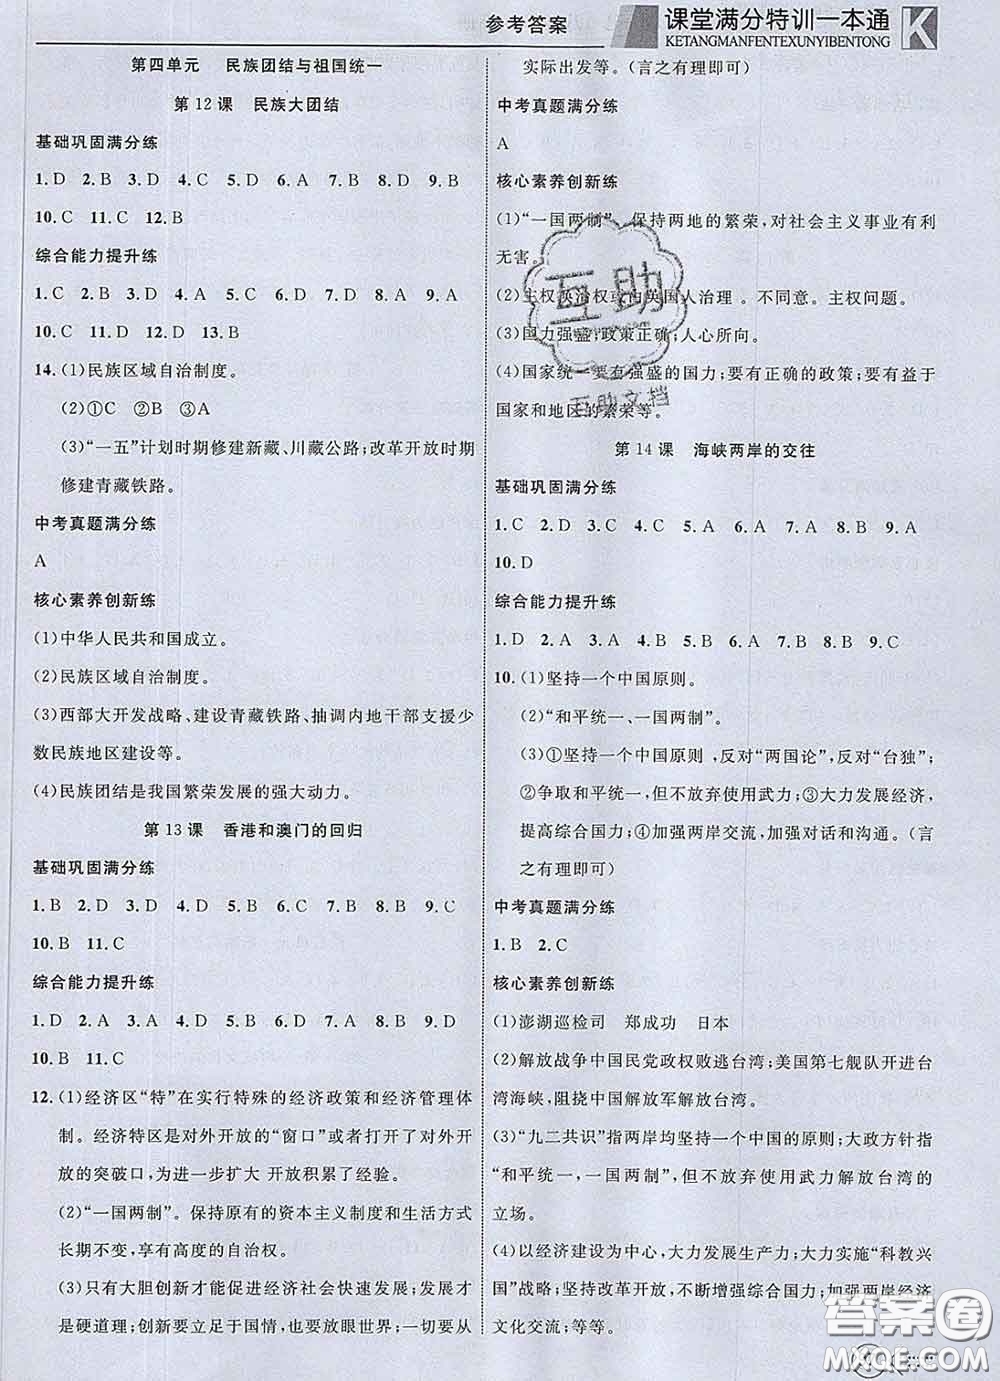 参考答案
课堂满分特训一本通
KETANGMANFENTEXUNYIBENTONG
第四单元 民族团结与祖国统一
第 12 课 民族大团结
基础巩固满分练
1. D 2. B 3. D 4. C 5. D 6. A 7. B 8. D 9. B
10. C 11. C 12. B
综合能力提升练
1. C 2. B 3. D 4. A 5. C 6. D 7. D 8. A 9. A
10. C 11. D 12. D 13. B
14. (1)民族区域自治制度。
(2)①C ②B ③A
(3)“一五”计划时期修建新藏、川藏公路;改革开放时期
修建青藏铁路。
中考真题满分练
A
核心素养创新练
(1)中华人民共和国成立。
(2)民族区域自治制度。
(3)西部大开发战略、建设青藏铁路、抽调内地干部支援少
数民族地区建设等。
(4)民族团结是我国繁荣发展的强大动力。
第 13 课 香港和澳门的回归
基础巩固满分练
1. B 2. D 3. D 4. D 5. B 6. C 7. B 8. B 9. C
10. B 11. C
综合能力提升练
1. D 2. A 3. A 4. C 5. B 6. D 7. A 8. B 9. D
10. B 11. C
12. (1)经济区“特”在实行特殊的经济政策和经济管理体
制。经济特区是对外开放的“窗口”或者打开了对外开
放的突破口,为进一步扩大 开放积累了经验。
(2)“一国两制”。保持原有的资本主义制度和生活方式
长期不变,享有高度的自治权。
(3)只有大胆创新才能促进经济社会快速发展;发展才
是硬道理;创新要立足于国情,也要放眼世界;一切要从
实际出发等。(言之有理即可)
中考真题满分练
A
核心素养创新练
(1)“一国两制”。保持两地的繁荣,对社会主义事业有利
无害。
(2)主权换治权或由英国人治理 。不同意。主权问题。
(3)国力强盛;政策正确;人心所向。
(4)国家统一要有强盛的国力;要有正确的政策;要有益于
国家和地区的繁荣等。
第 14 课 海峡两岸的交往
基础巩固满分练
1. C 2. D 3. C 4. C 5. A 6. A 7. A 8. B 9. A
10. D
综合能力提升练
1. D 2. A 3. A 4. C 5. A 6. B 7. A 8. B 9. C
10. (1)坚持一个中国原则。
(2)“和平统一、一国两制”。
(3)①坚持一个中国原则 ,反对“两国论”,反对“台独”;
②争取和平统一,但不放弃使用武力;③大力发展经济,
提高综合国力;④加强两岸交流,加强对话和沟通。(言
之有理即可)
中考真题满分练
1. B 2. C
核心素养创新练
(1)澎湖巡检司 郑成功 日本
(2)解放战争中国民党政权败逃台湾;美国第七舰队开进台
湾海峡,阻挠中国解放军解放台湾。
(3)“九二共识”指两岸均坚持一个中国的原则;大政方针指
“和平统一,一国两制”,但不放弃使用武力解放台湾的
立场。
(4)以经济建设为中心,大力发展生产力;大力实施“科教兴
国”战略;坚持改革开放,不断增强综合国力;加强两岸经济
文化交流;等等。
互助
互助文档
答案圈
MXQE.COM